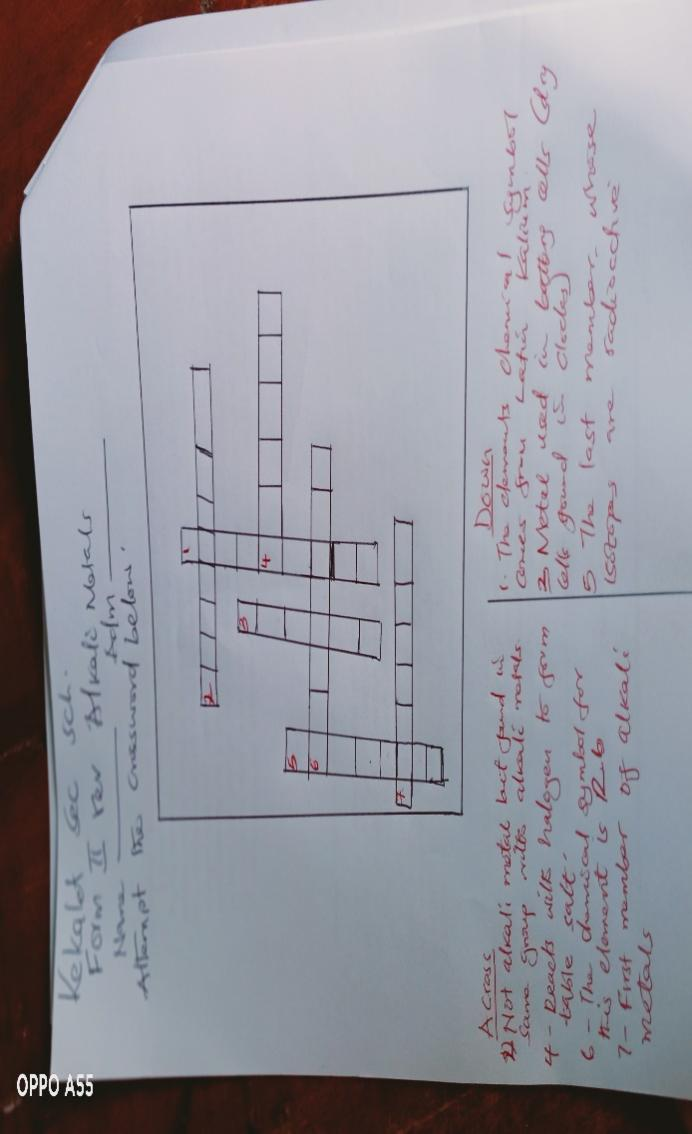 Kekalet Sec Sch.
Form II rev Alkali Metals
Name Adm
Attempt the crossword below.
1
2
3
4
5
6
7
Across
2) Not alkali metal but found in
same group with alkali metals
4 - Reacts with halogen to form
table salt.
6 - The chemical symbol for
this element is Rb
7 - First member of alkali
metals
Down
1. The elements chemical symbol
comes from Latin Kalium.
3 Metal used in battery cells (dry
cells found in clocks)
5 The last member whose
isotopes are radioactive
OPPO A55